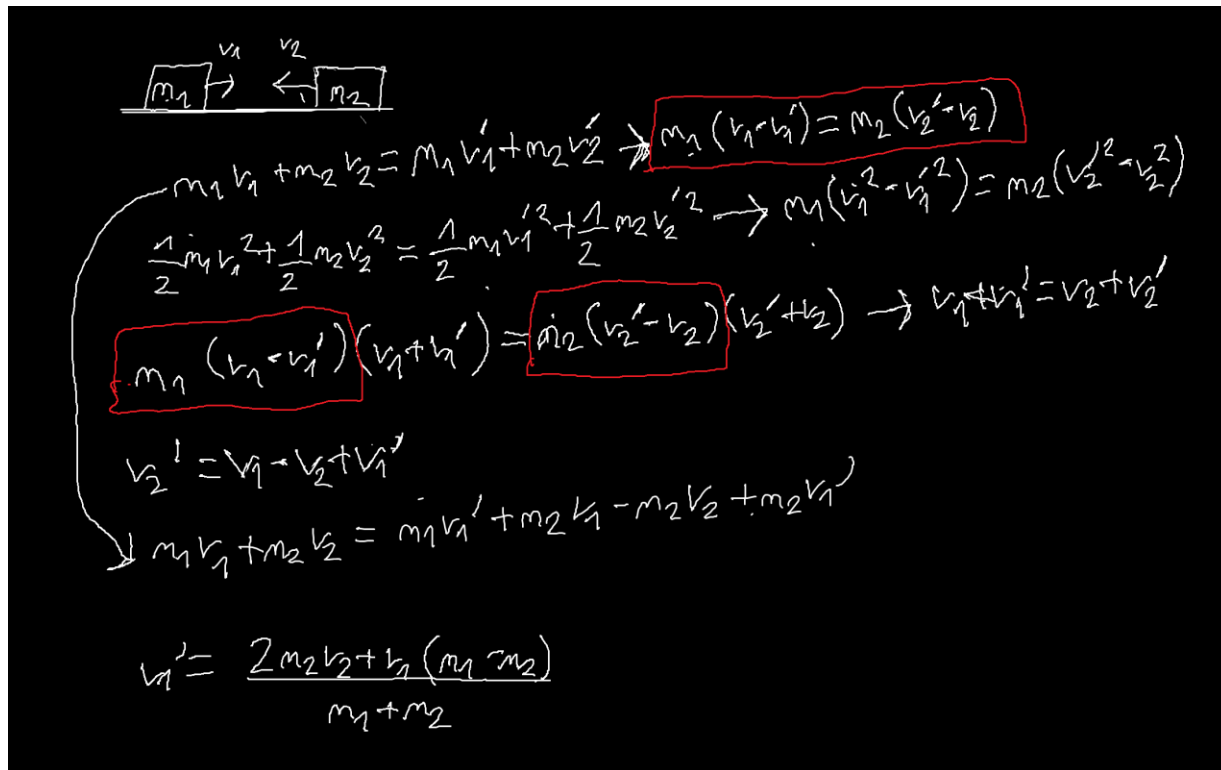 v1 v2
m1 m2
m1 v1 + m2 v2 = m1 v1' + m2 v2' → m1 (v1 - v1') = m2 (v2' - v2)
1/2 m1 v1² + 1/2 m2 v2² = 1/2 m1 v1'² + 1/2 m2 v2'² → m1 (v1² - v1'²) = m2 (v2'² - v2²)
m1 (v1 - v1') (v1 + v1') = m2 (v2' - v2) (v2' + v2) → v1 + v1' = v2 + v2'
v2' = v1 - v2 + v1'
m1 v1 + m2 v2 = m1 v1' + m2 v1 - m2 v2 + m2 v1'
v1' = 2 m2 v2 + v1 (m1 - m2)
m1 + m2